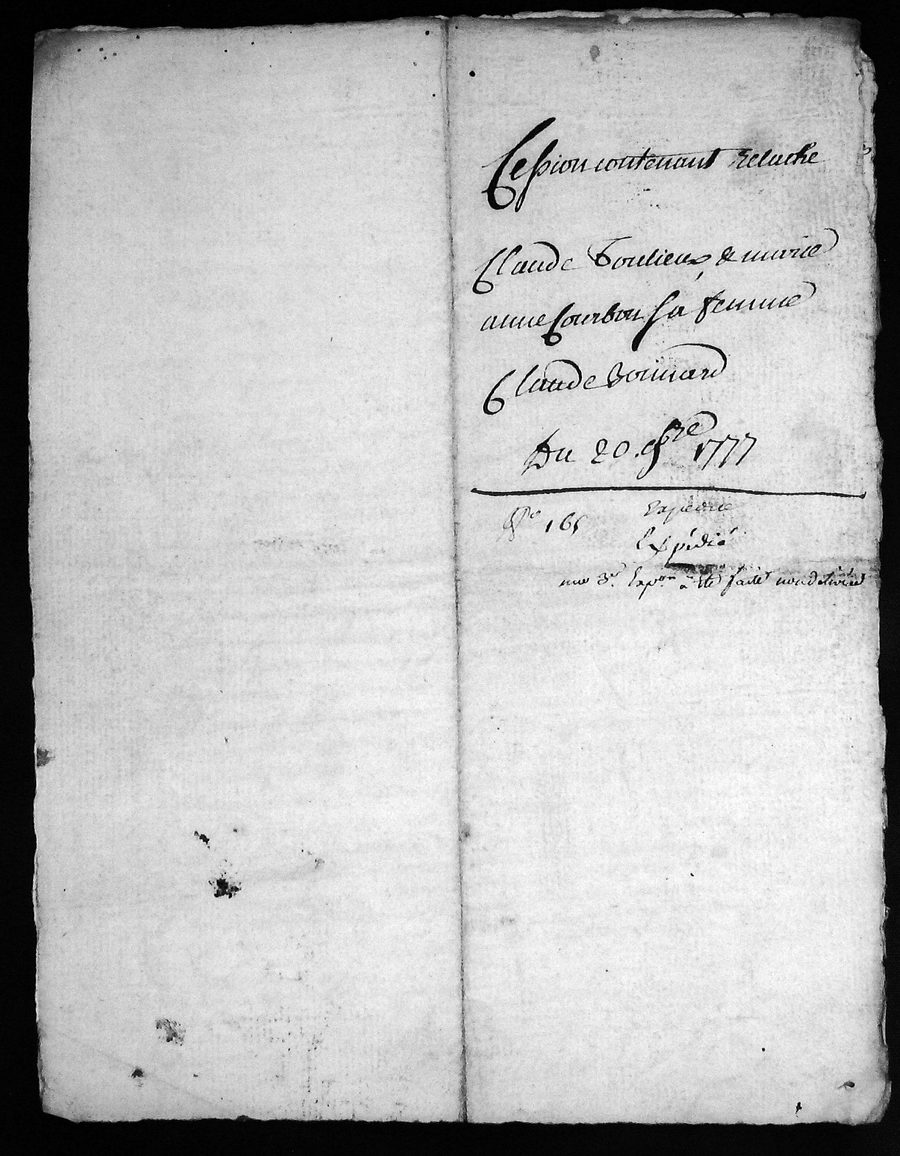 Cession contenant relache
Claude Soulieux & marie
anne Courbon sa femme
Claude Bonnard
Du 20. 9bre 1777
161
Expédié
Expédié
une 3e Expon a été faite non délivrée